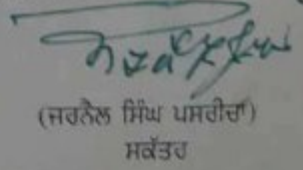 (ਜਰਨੈਲ ਸਿੰਘ ਪਸਰੀਚਾ)
ਸਕੱਤਰ